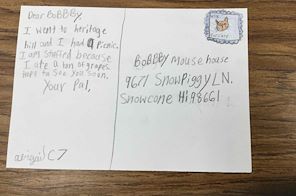 Dear BoBBBy,
I went to heritage
hill and I had a Picnic.
I am stuffed because
I ate a ton of grapes.
hope to See you Soon.
Your Pal,
C7
BoBBBy mouse house
9671 SnowPiggy LN.
Snowcone Hi 98661